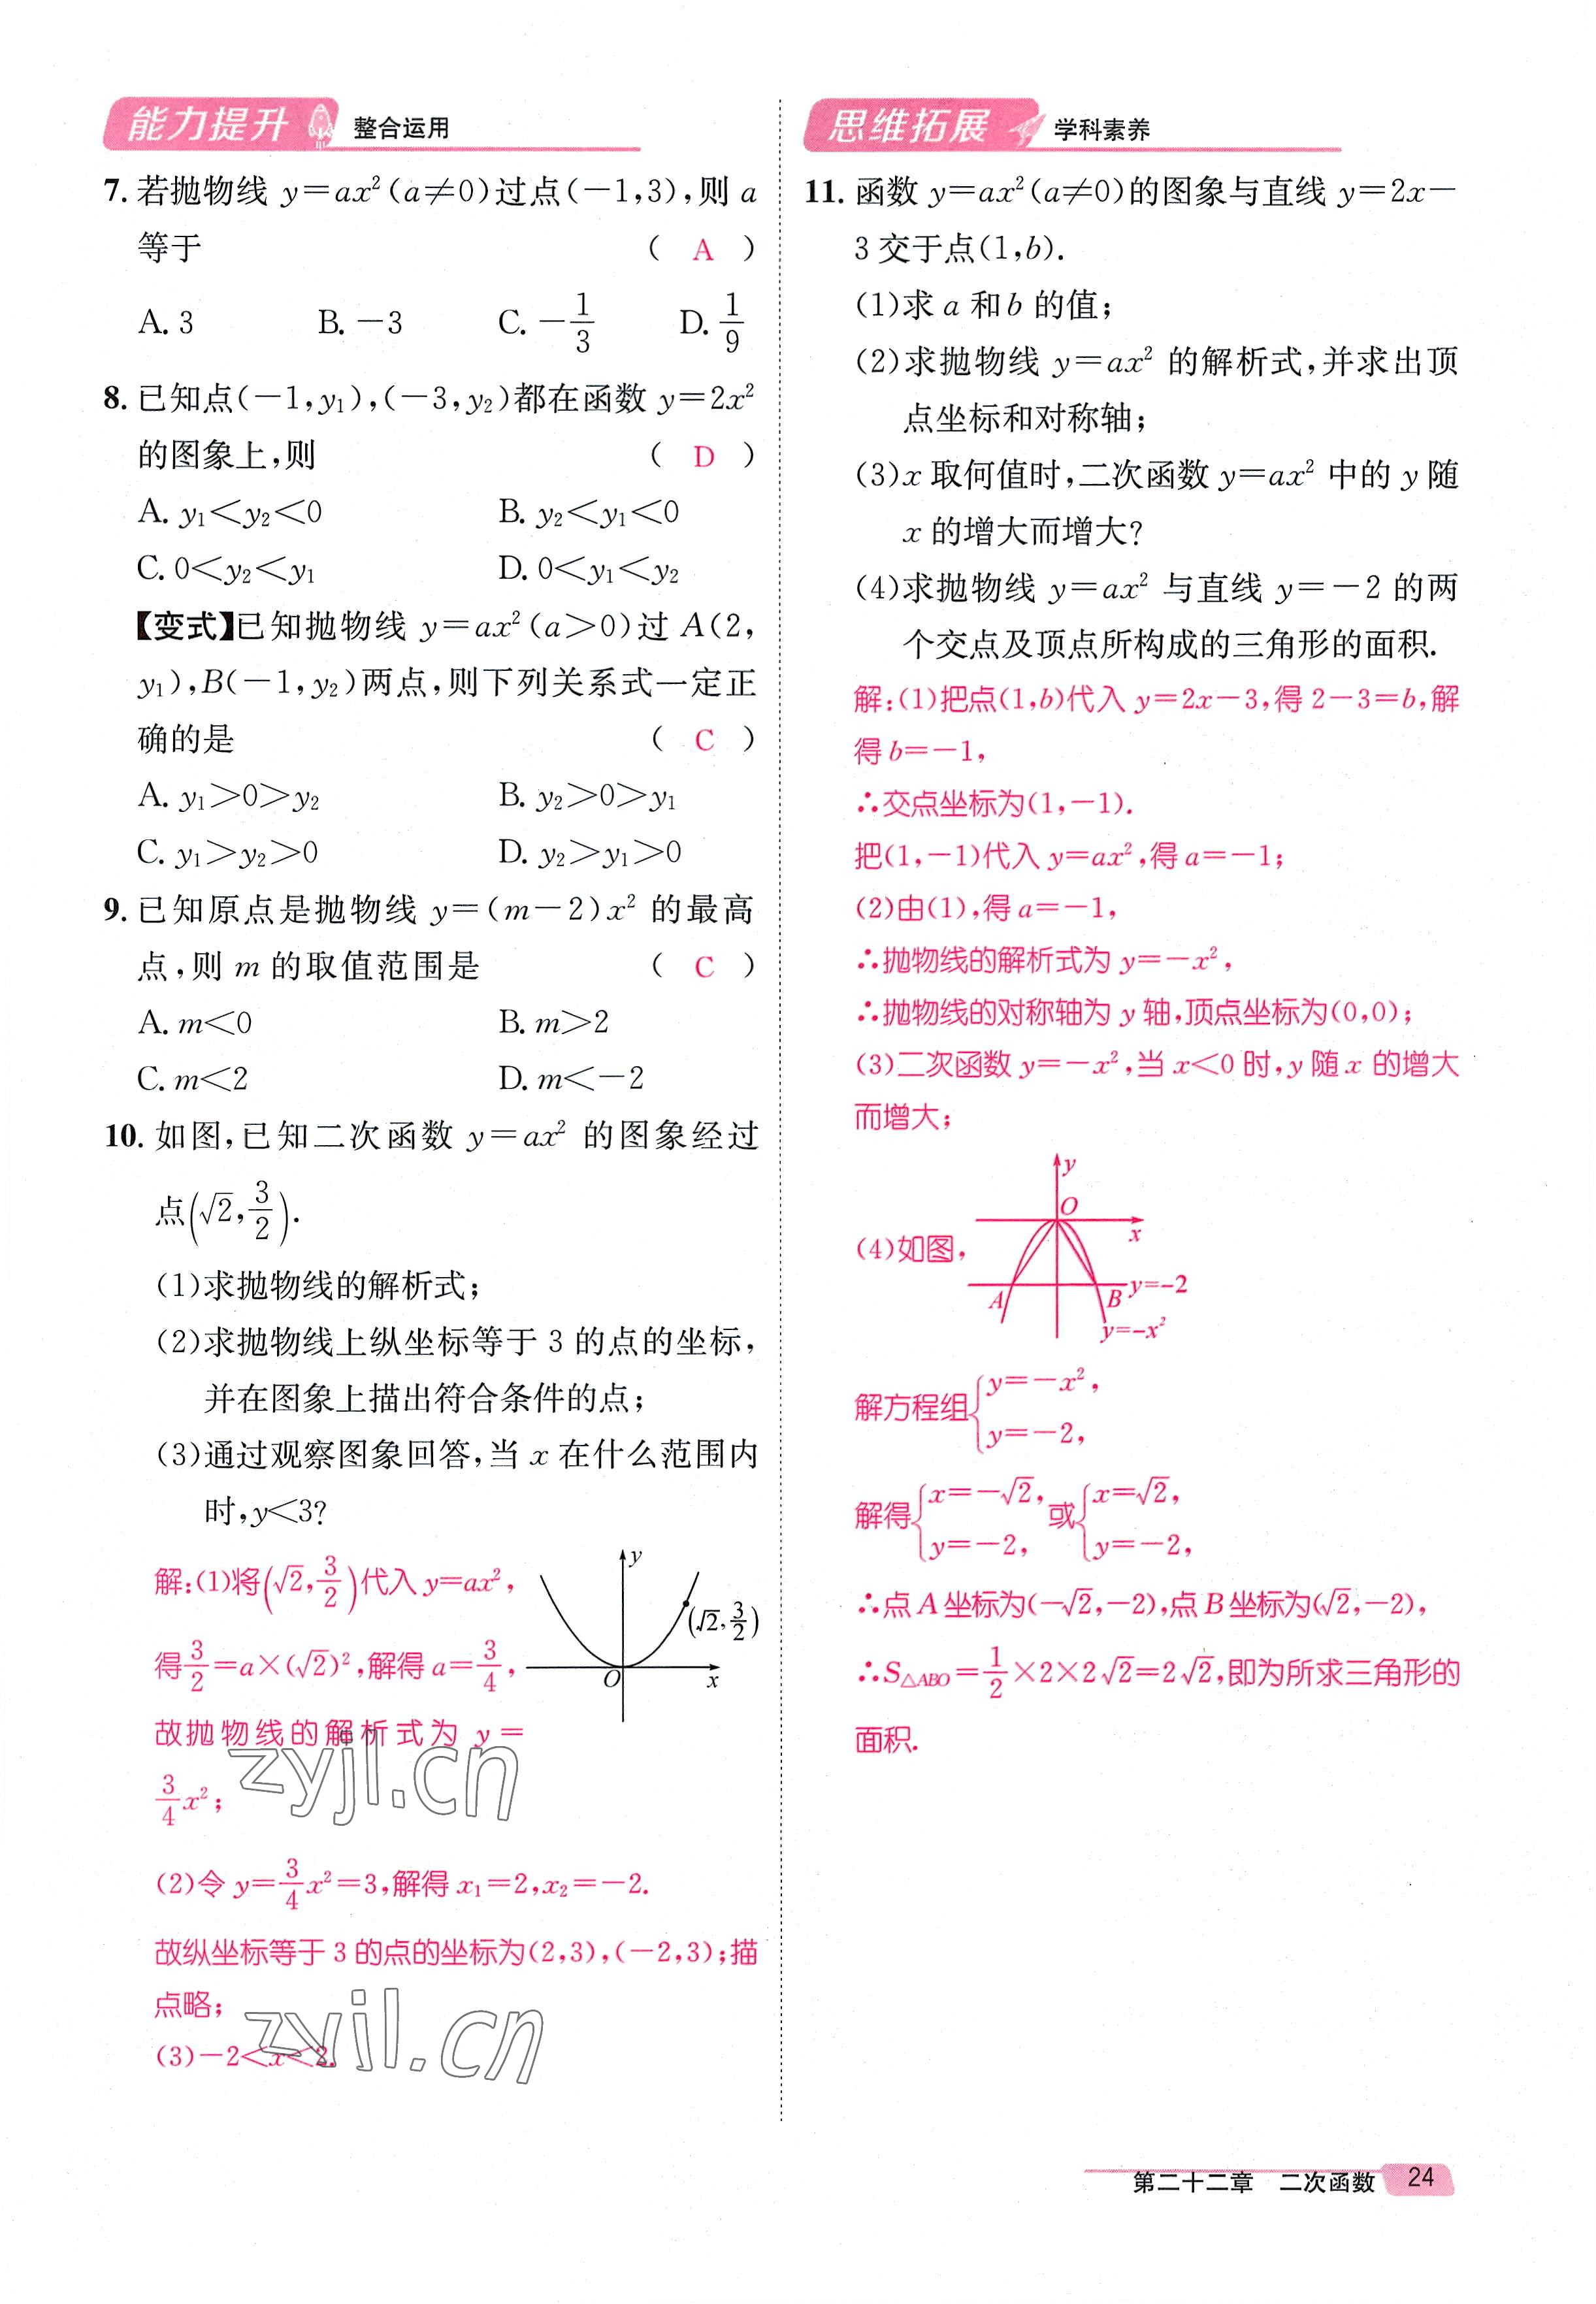 能力提升 整合运用
7. 若抛物线 y=ax²(a≠0)过点(-1,3),则 a
等于 ( A )
A. 3 B. -3 C. -1/3 D. 1/9
8. 已知点(-1,y₁),(-3,y₂)都在函数 y=2x²
的图象上,则 ( D )
A. y₁<y₂<0 B. y₂<y₁<0
C. 0<y₂<y₁ D. 0<y₁<y₂
【变式】已知抛物线 y=ax²(a>0)过 A(2,
y₁),B(-1,y₂)两点,则下列关系式一定正
确的是 ( C )
A. y₁>0>y₂ B. y₂>0>y₁
C. y₁>y₂>0 D. y₂>y₁>0
9. 已知原点是抛物线 y=(m-2)x² 的最高
点,则 m 的取值范围是 ( C )
A. m<0 B. m>2
C. m<2 D. m<-2
10. 如图,已知二次函数 y=ax² 的图象经过
点(√2,3/2).
(1)求抛物线的解析式;
(2)求抛物线上纵坐标等于 3 的点的坐标,
并在图象上描出符合条件的点;
(3)通过观察图象回答,当 x 在什么范围内
时,y<3?
解:(1)将(√2,3/2)代入 y=ax²,
得3/2=a×(√2)²,解得 a=3/4,
故抛物线的解析式为 y=
3/4x²;
y
(√2,3/2)
O x
zyjl.cn
(2)令 y=3/4x²=3,解得 x₁=2,x₂=-2.
故纵坐标等于 3 的点的坐标为(2,3),(-2,3);描
点略;
(3)-2<x<2.
zyjl.cn
思维拓展 学科素养
11. 函数 y=ax²(a≠0)的图象与直线 y=2x-
3 交于点(1,b).
(1)求 a 和 b 的值;
(2)求抛物线 y=ax² 的解析式,并求出顶
点坐标和对称轴;
(3)x 取何值时,二次函数 y=ax² 中的 y 随
x 的增大而增大?
(4)求抛物线 y=ax² 与直线 y=-2 的两
个交点及顶点所构成的三角形的面积.
解:(1)把点(1,b)代入 y=2x-3,得 2-3=b,解
得 b=-1,
∴交点坐标为(1,-1).
把(1,-1)代入 y=ax²,得 a=-1;
(2)由(1),得 a=-1,
∴抛物线的解析式为 y=-x²,
∴抛物线的对称轴为 y 轴,顶点坐标为(0,0);
(3)二次函数 y=-x²,当 x<0 时,y 随 x 的增大
而增大;
(4)如图,
y
O
x
A B y=-2
y=-x²
解方程组{y=-x²,
y=-2,
解得{x=-√2, 或{x=√2,
y=-2, y=-2,
∴点 A 坐标为(-√2,-2),点 B 坐标为(√2,-2),
∴S△ABO=1/2×2×2√2=2√2,即为所求三角形的
面积.
第二十二章 二次函数 24